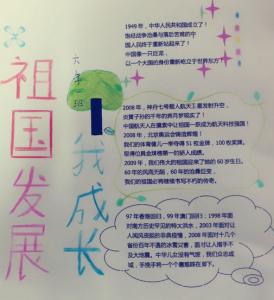 祖国发展
我成长
六年一班
1949 年，中华人民共和国成立了！
饱经战争沧桑与落后苦难的中
国人民终于重新站起来了！
中国像一只巨龙，
以一个大国的身份重新屹立于世界东方！
2008 年，神舟七号载人航天工程发射升空，
炎黄子孙的千年的奔月梦现实了！
中国航天人在探索中让祖国一跃成为航天科技强国！
2008 年，北京奥运会铸造辉煌！
我们的体育健儿一举夺得 51 枚金牌，100 枚奖牌，
取得位具金牌榜第一的骄人成绩。
2009 年，我们伟大的祖国迎来了她的 60 岁生日。
60 年的风雨兼程，60 年的沧桑巨变。
我们的祖国必将继续书写不朽的传奇。
97 年香港回归；99 年澳门回归；1998 年面
对南方历史罕见的特大洪水，2003 年面对让
人闻风丧胆的非典疫情，2008 年面对十几个
省份百年不遇的冰雪灾害，面对让人措手不
及大地震。中华儿女没有气馁，我们众志成
城，手挽手将一个个磨难踩在脚下。